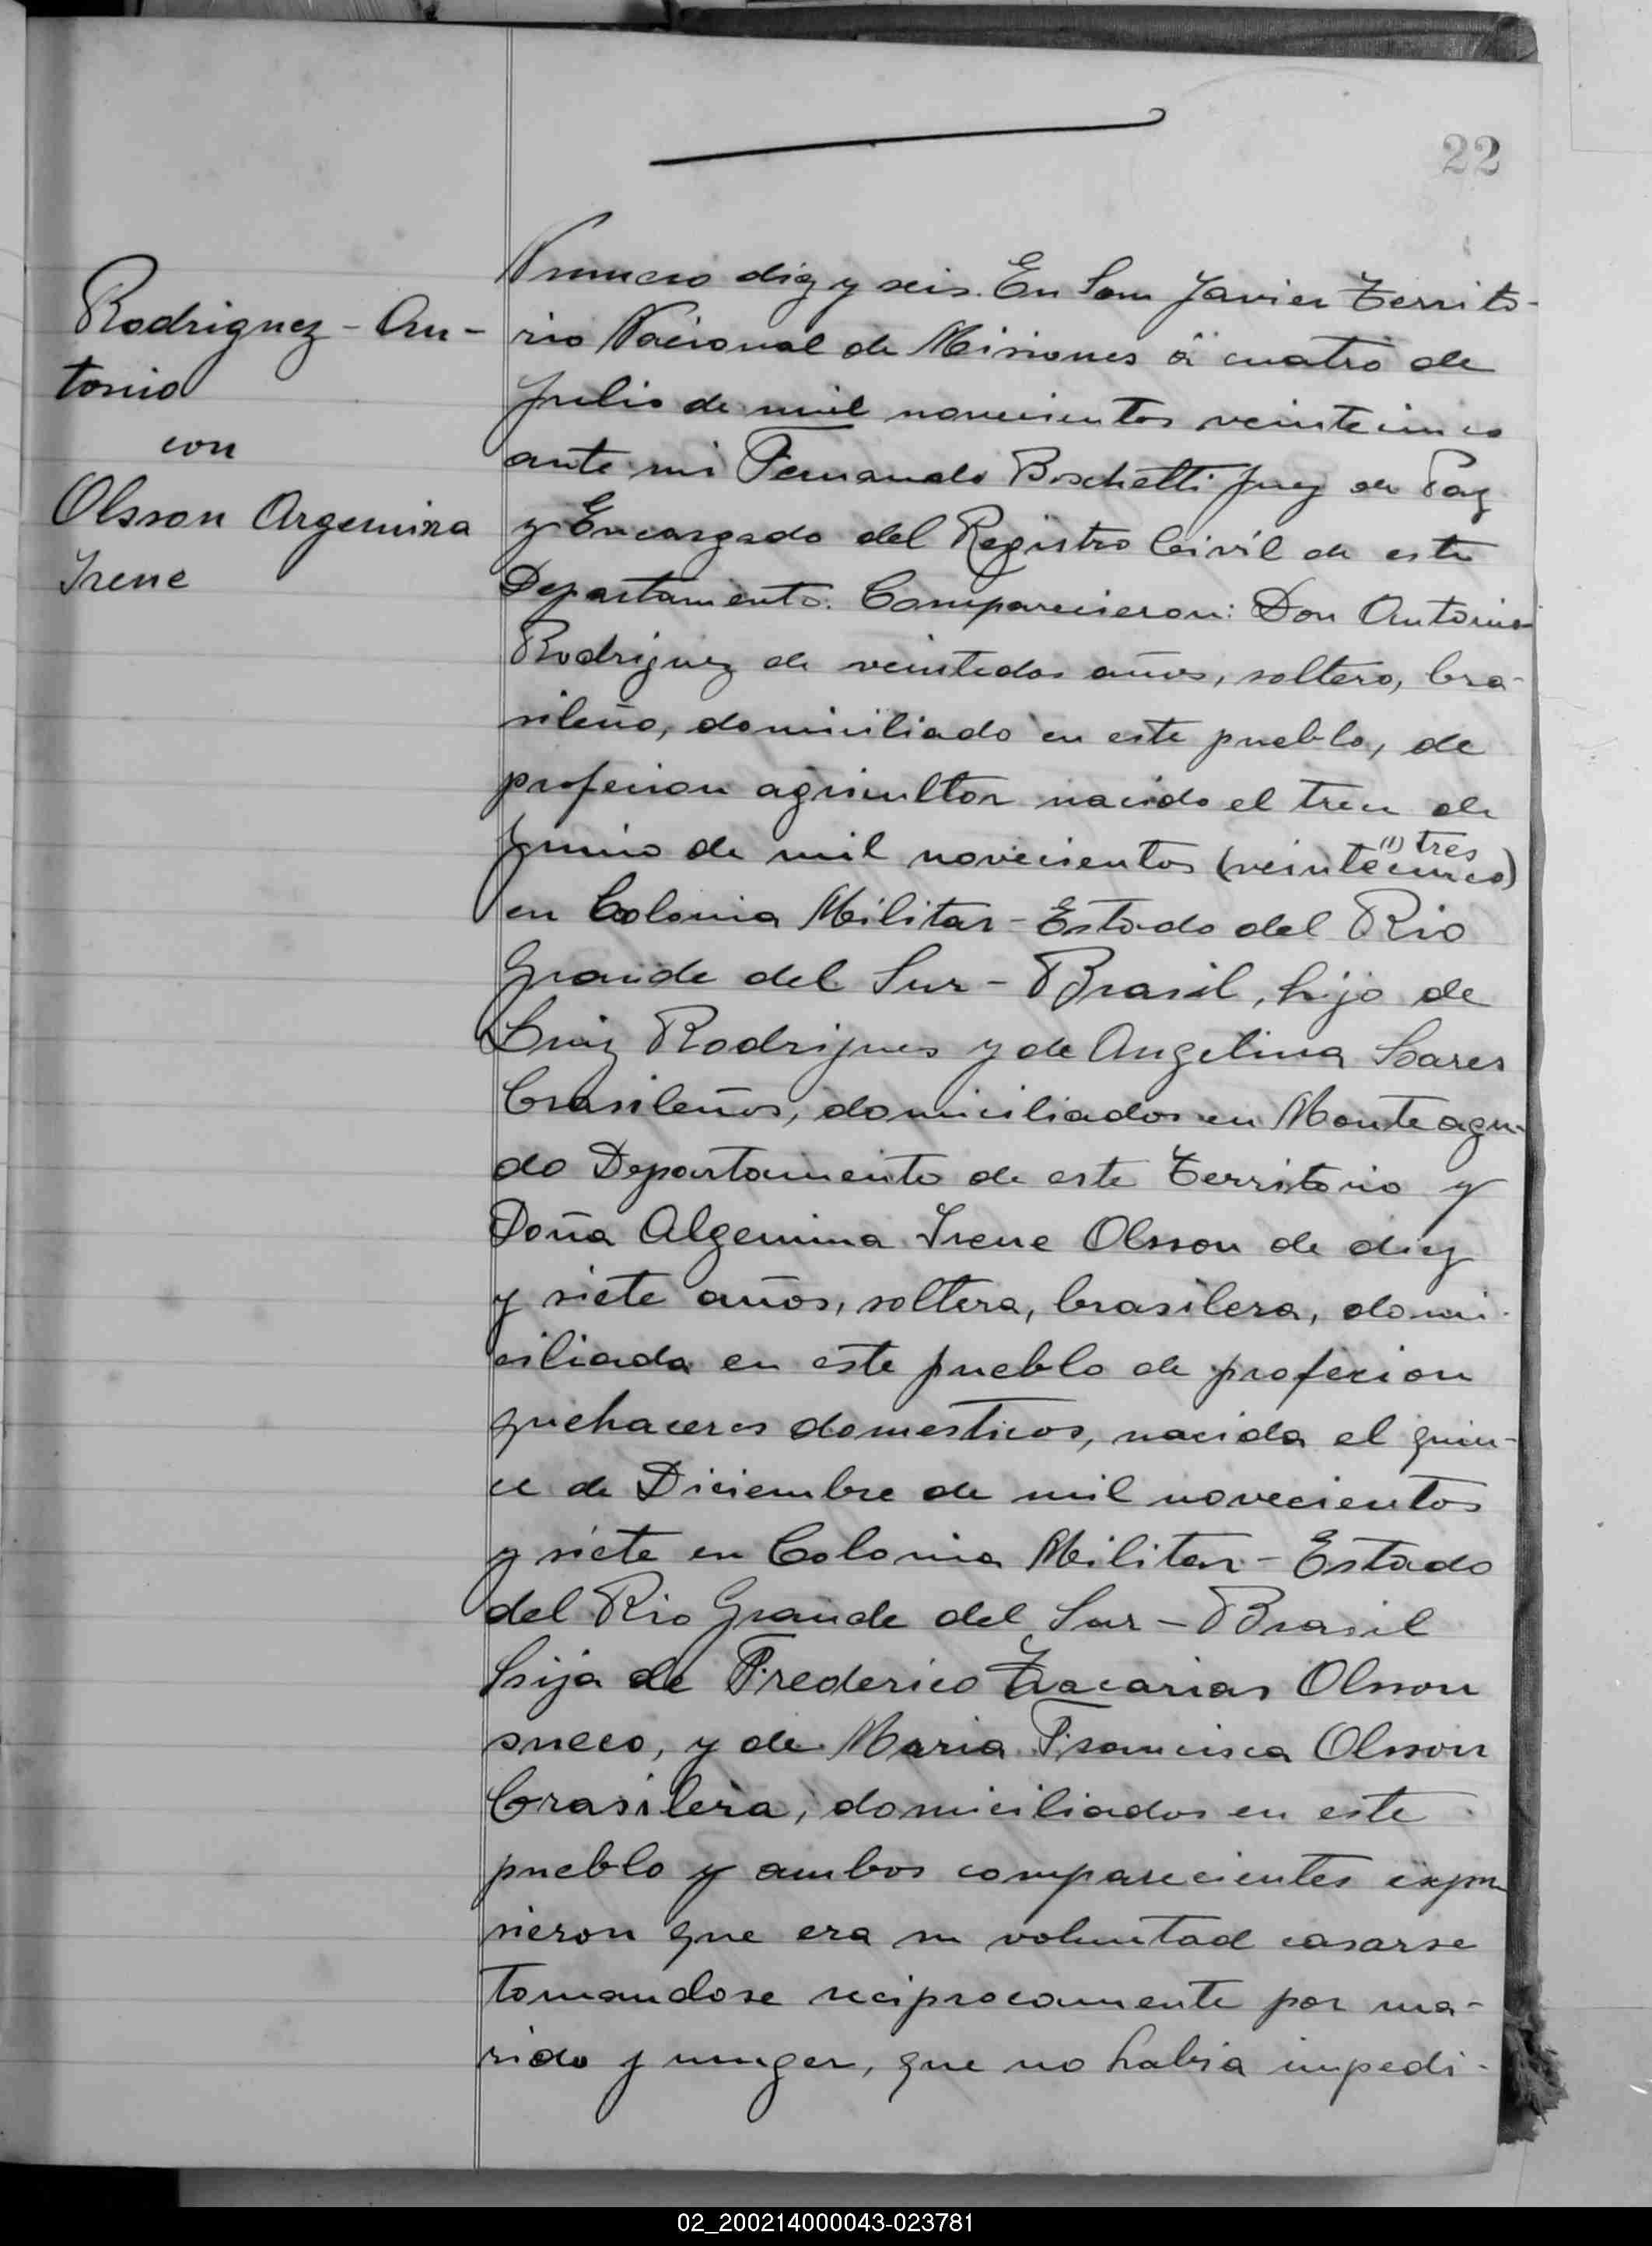 22
Rodriguez - An-
tonio
con
Olsson Argemira
Irene
Numero diez y seis. En San Javier Territo-
rio Nacional de Misiones á cuatro de
Julio de mil novecientos veinticinco
ante mi Fernando Boschetti Juez de Paz
y Encargado del Registro Civil de este
Departamento. Comparecieron: Don Antonio
Rodriguez de veintedos años, soltero, bra-
sileño, domiciliado en este pueblo, de
profecion agricultor nacido el trece de
Junio de mil novecientos (veintecinco) (1) tres
en Colonia Militar - Estado del Rio
Grande del Sur - Brasil, hijo de
Luiz Rodrigues y de Angelina Soares
brasileños, domiciliados en Monteagu-
do Departamento de este Territorio y
Doña Algemina Irene Olsson de diez
y siete años, soltera, brasilera, domi-
ciliada en este pueblo de profecion
quehaceres domesticos, nacida el quin-
ce de Diciembre de mil novecientos
y siete en Colonia Militar - Estado
del Rio Grande del Sur - Brasil
hija de Frederico Zacarias Olsson
sueco, y de Maria Francisca Olsson
brasilera, domiciliados en este
pueblo y ambos comparecientes expu
sieron que era su voluntad casarse
tomandose reciprocamente por ma-
rido y muger, que no habia impedi-
02_200214000043-023781